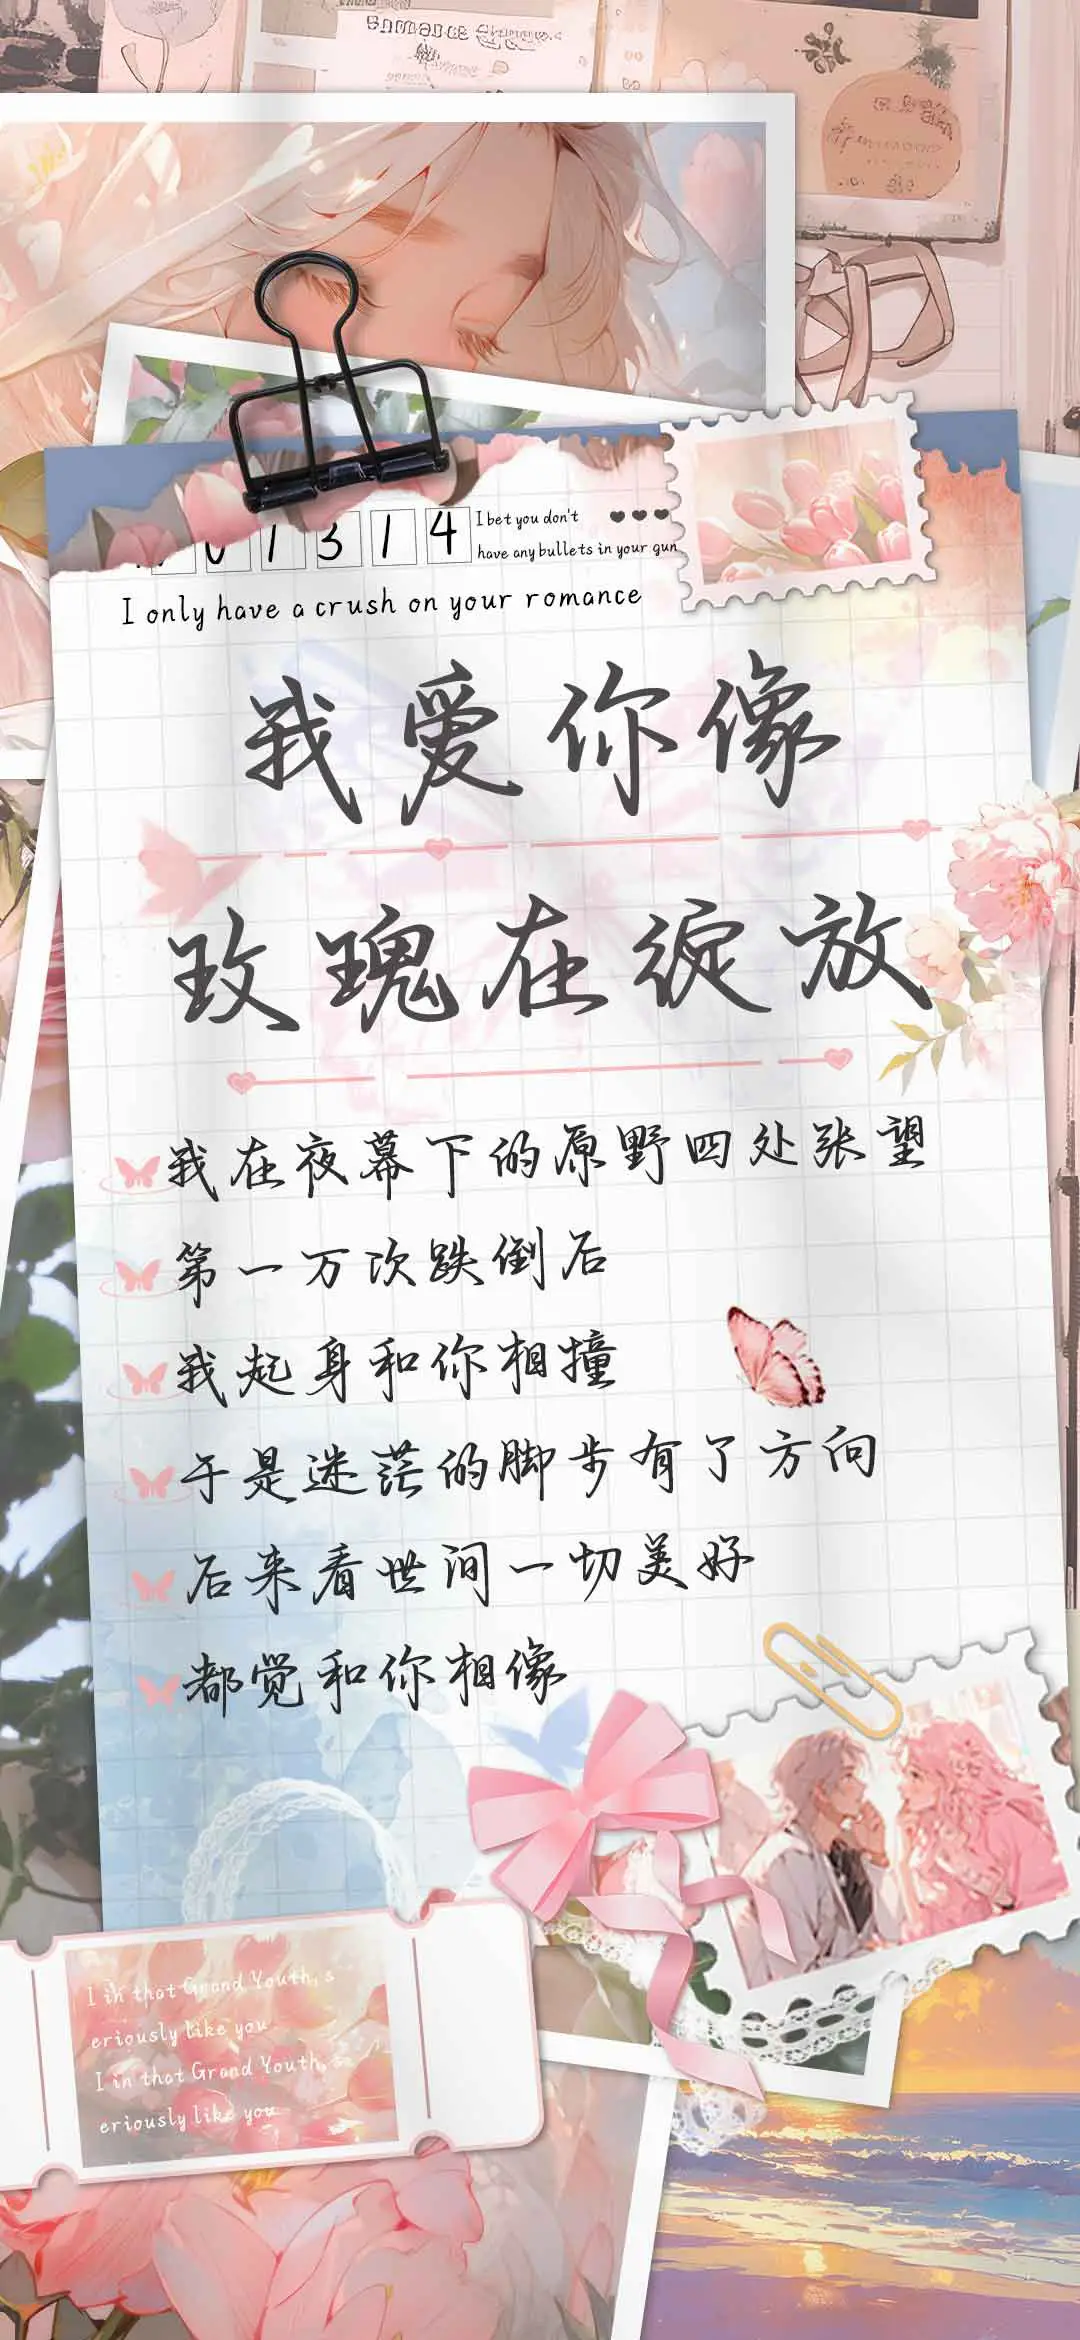 1 3 1 4
I bet you don't
have any bullets in your gun
I only have a crush on your romance
我爱你像
玫瑰在绽放
我在夜幕下的原野四处张望
第一万次跌倒后
我起身和你相撞
于是迷茫的脚步有了方向
后来看世间一切美好
都觉和你相像
I in that Grand Youth, s
eriously like you
I in that Grand Youth, s
eriously like you